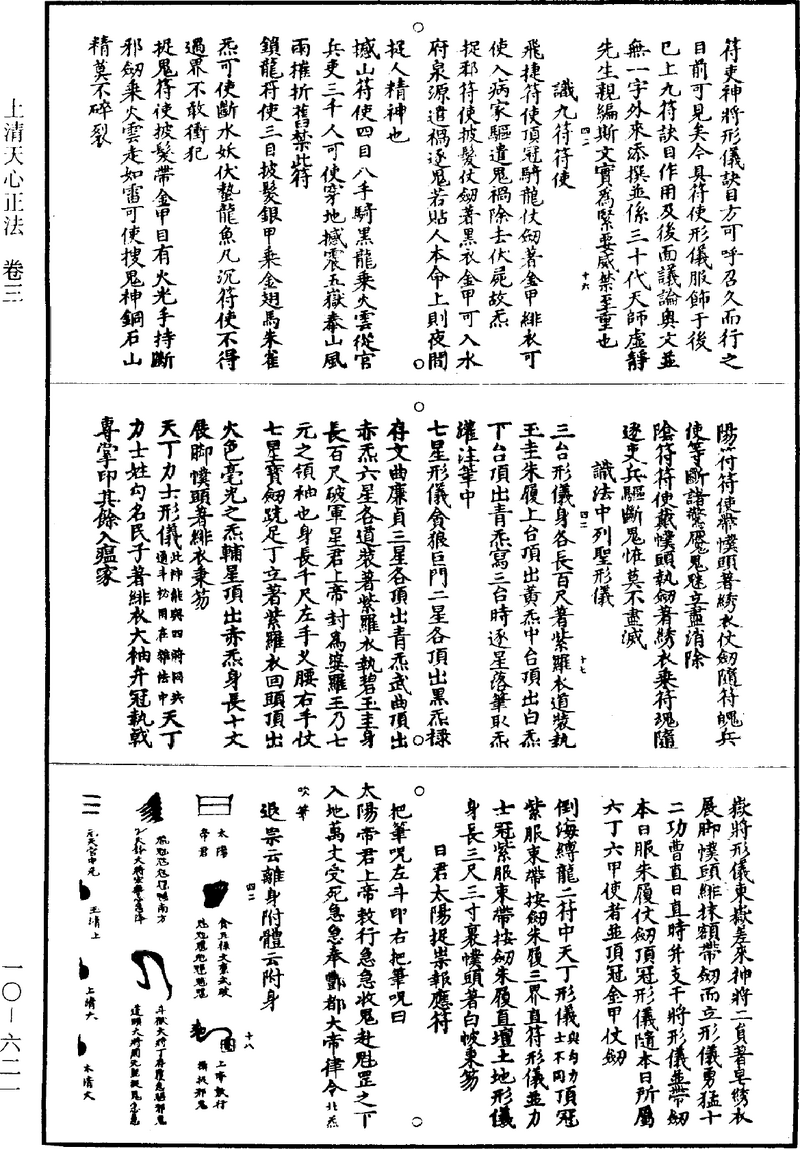 上清天心正法　卷三
一〇—六二一
符吏神將形儀訣目方可呼召久而行之
目前可見矣今具符使形儀服飾于後
已上九符訣目作用及後面議論奧文並
無一字外來添撰並係三十代天師虛靜
先生親編斯文實為緊要威禁至重也
識九符符使
飛捷符使頂冠騎龍仗劒著金甲緋衣可
使入病家驅遣鬼禍除去伏屍故炁
捉邪符使披髮仗劒著黑衣金甲可入水
府泉源遣禍逐鬼若貼人本命上則夜間
捉人精神也
撼山符使四目八手騎黑龍乘火雲從官
兵吏三千人可使穿地撼震五嶽泰山風
雨摧折舊禁此符
鎖龍符使三目披髮銀甲乘金翅馬朱雀
炁可使斷水妖伏蟄龍魚凡沉符使不得
過界不敢衝犯
捉鬼符使披髮帶金甲目有火光手持斷
邪劒乘火雲走如雷可使搜鬼神銅石山
精莫不碎裂
陽符符使帶幞頭著綉衣仗劒隨符魄兵
使等斷諸驚魘鬼魅立盡消除
陰符符使戴幞頭執劒著綉衣乘符魂隨
逐吏兵驅斷鬼恠莫不盡滅
識法中列聖形儀
三台形儀身各長百尺著紫羅衣道裝執
玉圭朱履上台頂出黃炁中台頂出白炁
下台頂出青炁寫三台時逐星落筆取炁
灌注筆中
七星形儀貪狼巨門二星各頂出黑炁祿
存文曲廉貞三星各頂出青炁武曲頂出
赤炁六星各道裝著紫羅衣執碧玉圭身
長百尺破軍星君上帝封為婆羅王乃七
元之領袖也身長千尺左手叉腰右手仗
七星寶劒跣足丁立著紫羅衣回頭頂出
火色毫光之炁輔星頂出赤炁身長十丈
展脚幞頭著緋衣秉笏
天丁力士形儀此神能與四將同共通斗訪用在雜法中天丁
力士姓勾名民子著緋衣大袖弁冠執戟
專掌印其餘入瘟家
嶽將形儀東嶽差來神將二員著皂綉衣
展脚幞頭緋抹額帶劒而立形儀勇猛十
二功曹直日直時并支干將形儀並帶劒
本日服朱履仗劒頂冠形儀隨本日所屬
六丁六甲使者並頂冠金甲仗劒
倒海縛龍二符中天丁形儀與勾力士不同頂冠
紫服束帶按劒朱履三界直符形儀並力
士冠紫服束帶按劒朱履直壇土地形儀
身長三尺三寸裹幞頭著白帔秉笏
日君太陽捉祟報應符
把筆呪左斗印右把筆呪曰
太陽帝君上帝敕行急急收鬼赴魁罡之下
入地萬丈受死急急奉酆都大帝律令北炁
吹筆
退祟云離身附體云附身
太陽
帝君
食巨祿文廉武破
上帝敕行
攝捉邪鬼
元炁宮中元
玉清上
上清大
太清大